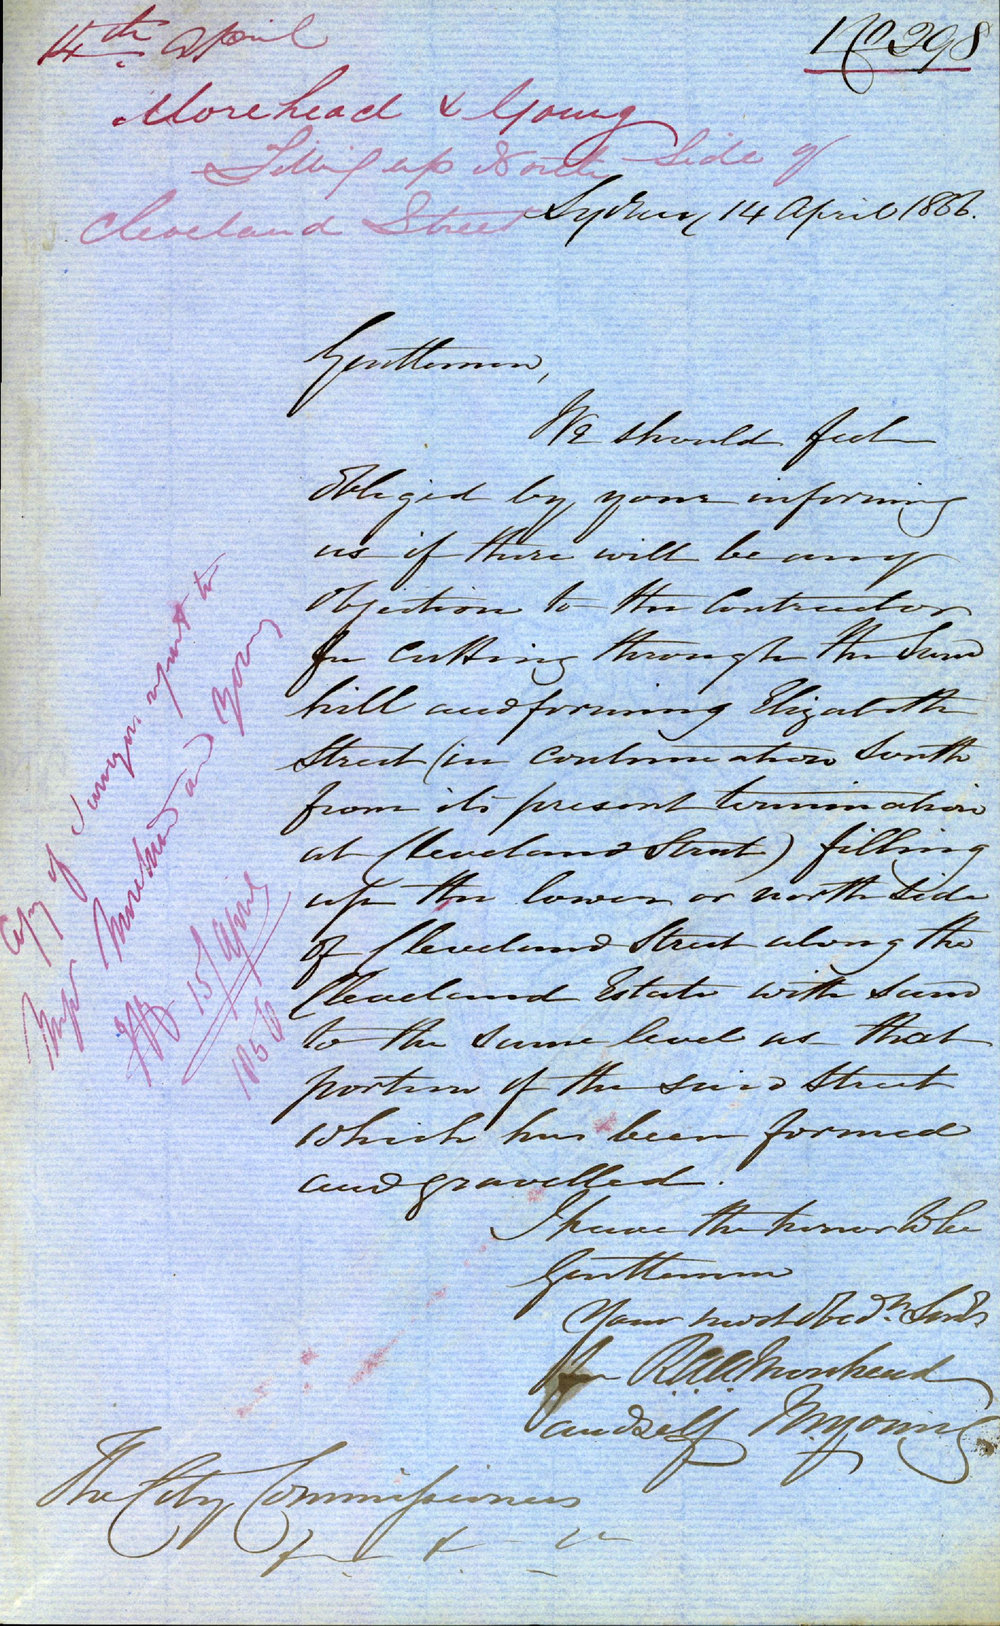 14th April
No 298
Morehead & Young
Filling up North Side of
Cleveland Street
Sydney 14 April 1856.
Gentlemen,
We should feel
obliged by your informing
us if there will be any
objection to the Contractor
for cutting through the Sand
hill and forming Elizabeth
Street (in continuation South
from its present termination
at Cleveland Street) filling
up the lower or north side
of Cleveland Street along the
Cleveland Estate with sand
to the same level as that
portion of the said Street
which has been formed
and gravelled.
I have the honor to be
Gentlemen
Your most Obedt. Servts
for R.A.A. Morehead
and self M Young
The City Commissioners
Copy of Surveyors report to
Messrs Morehead and Young
15 April
1856